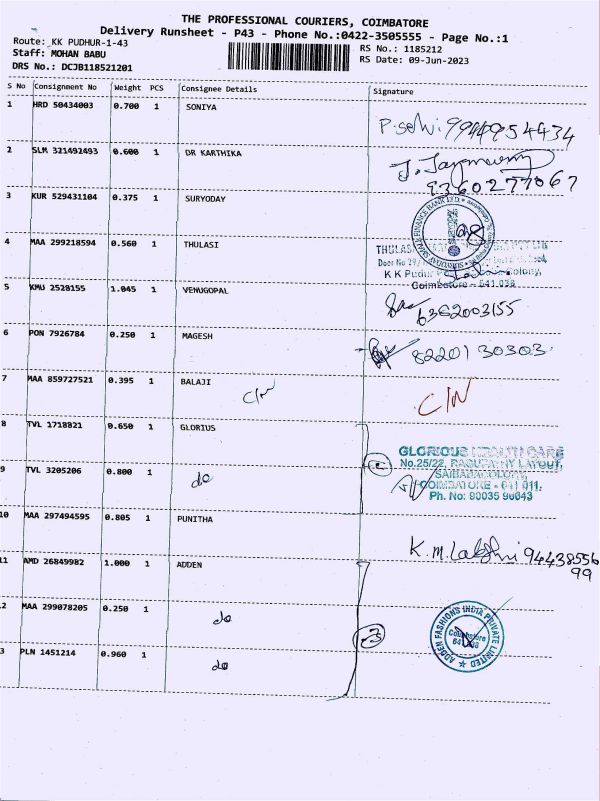 THE PROFESSIONAL COURIERS, COIMBATORE
Delivery Runsheet - P43 - Phone No.:0422-3505555 - Page No.:1
Route: KK PUDHUR-1-43
RS No.: 1185212
Staff: MOHAN BABU
RS Date: 09-Jun-2023
DRS No.: DCJB118521201
S No Consignment No Weight PCS Consignee Details Signature
1 HRD 50434003 0.700 1 SONIYA
P. selvi 9944954434
2 SLM 321492493 0.600 1 DR KARTHIKA
9360277067
3 KUR 529431104 0.375 1 SURYODAY
4 MAA 299218594 0.560 1 THULASI
THULASI
Door No 29/
K K Pudur Colony,
Coimbatore - 641 038
5 KMU 2528155 1.045 1 VENUGOPAL
6362003155
6 PON 7926784 0.250 1 MAGESH
8220130303
7 MAA 859727521 0.395 1 BALAJI
C/N C/N
8 TVL 1718821 0.650 1 GLORIUS
GLORIOUS HEALTH CARE
No.25/22, RAGUPATHY LAYOUT,
SAIBABA COLONY,
COIMBATORE - 641 011.
Ph. No: 90035 90643
9 TVL 3205206 0.800 1
do
2
10 MAA 297494595 0.805 1 PUNITHA
K.M. Lakshmi 9443855699
11 AMD 26849982 1.000 1 ADDEN
2 MAA 299078205 0.250 1
do
3
ADDEN FASHIONS INDIA PRIVATE LIMITED
Coimbatore
3 PLN 1451214 0.960 1
do